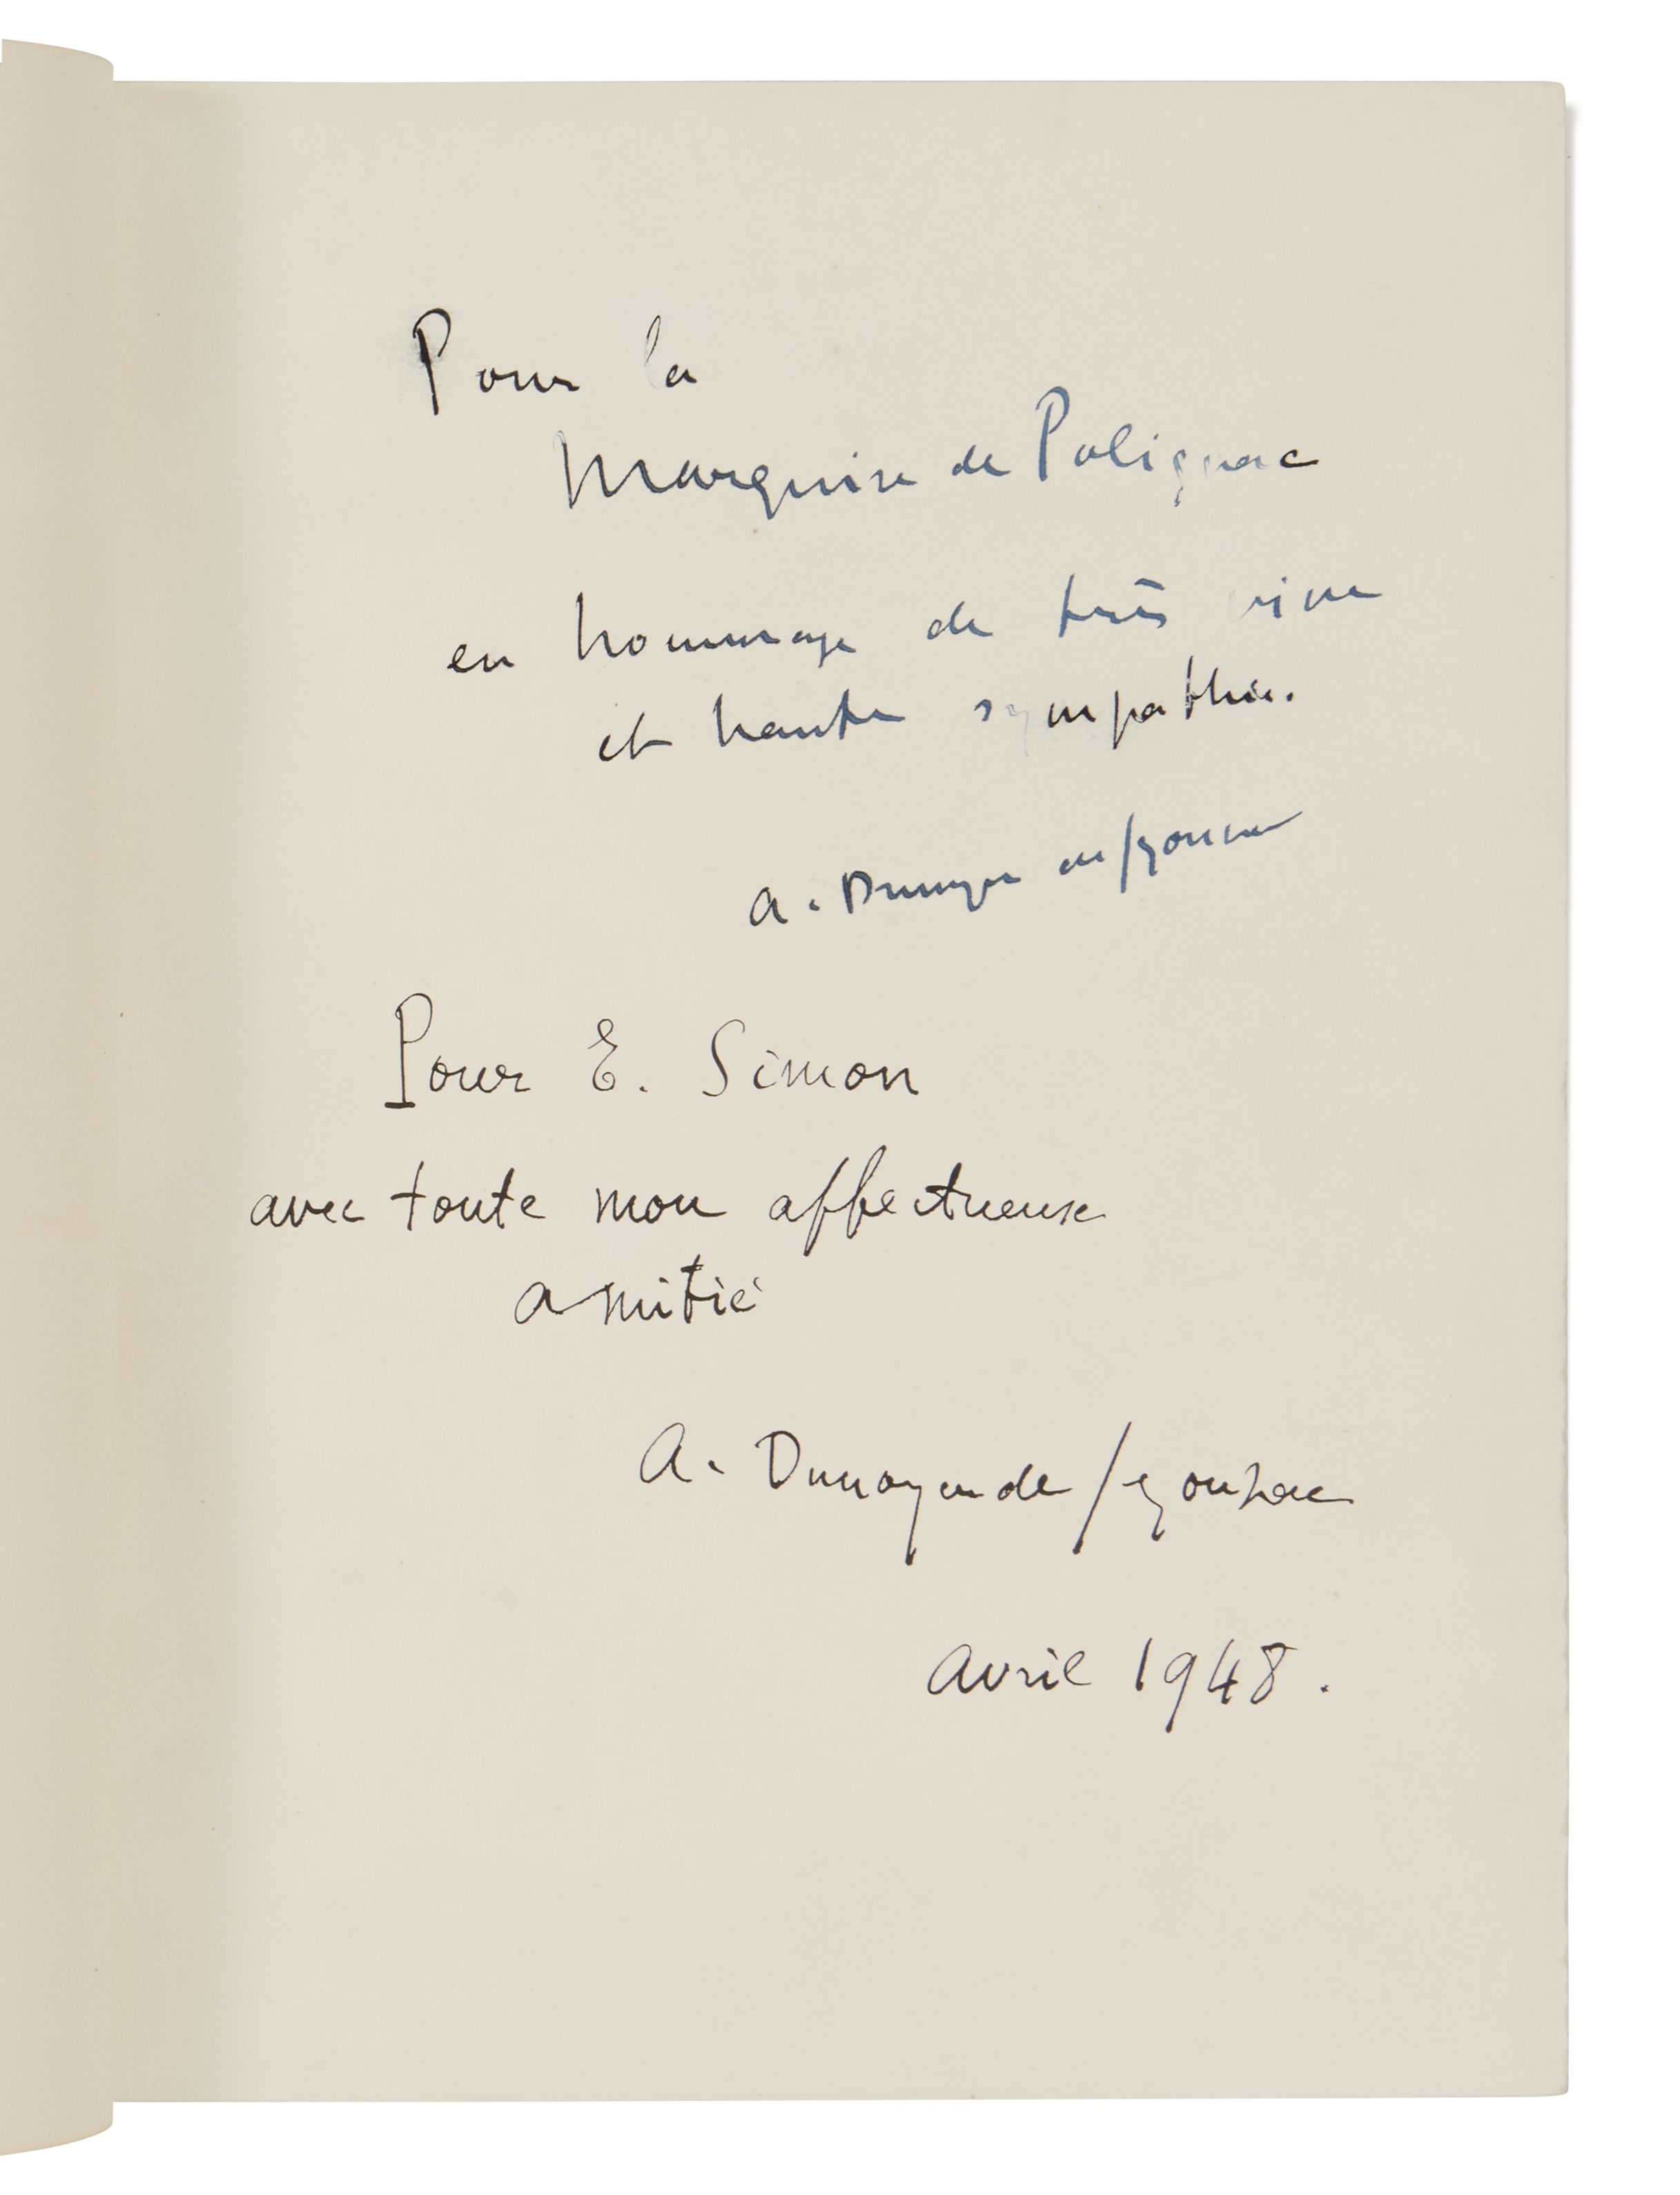 Pour la
Marquise de Polignac
en hommage de très vive
et haute sympathie.
A. Dunoyer de Segonzac
Pour E. Simon
avec toute mon affectueuse
amitié
A. Dunoyer de Segonzac
Avril 1948.